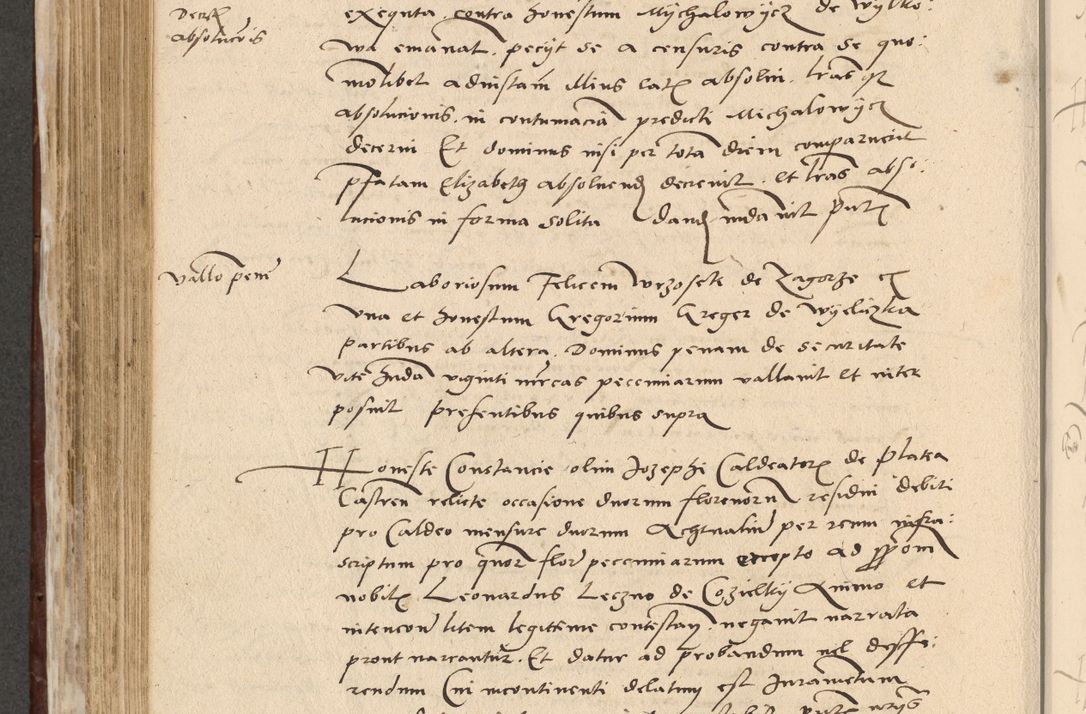 Decretum
absolucionis
exequta contra honestum Mychalowycz de Wylko:
wa emanat. pecyt se a censuris contra se quo:
molibet ad instam illius lat absolui. lras qz
absolucionis in contumacia predicti Michalowycz
decerni Et dominus nisi per tota diem comparuerit
pfatam Elizabeth absoluend decrevit. et lras abso:
lucionis in forma solita dand mdavit Pntz
Vallo pene
Laboriosum Felicem Wrzosek de Zagorze ex
vna et honestum Gregorium Greger de Wyeliczka
partibus ab altera. Dominus penam de securitate
vite hnda viginti mrcas pecuniarum vallavit et inter
posuit presentibus quibus supra
Honeste Constancie olim Jozephi Caldeator de Platea
Castren relicte occasione duorum florenorum residui debiti
pro Caldeo mensure duorum Achtualiu per reum infra:
scriptum pro quor flor pecuniarum excepto ad ppom
nobilis Leonardus Leczno de Cozielky Animo et
intencon litem legittime contestan. negavit narrata
prout narrantur. Et datur ad probandum vel deffe:
rendum Cui incontinenti delatum est Juramentum